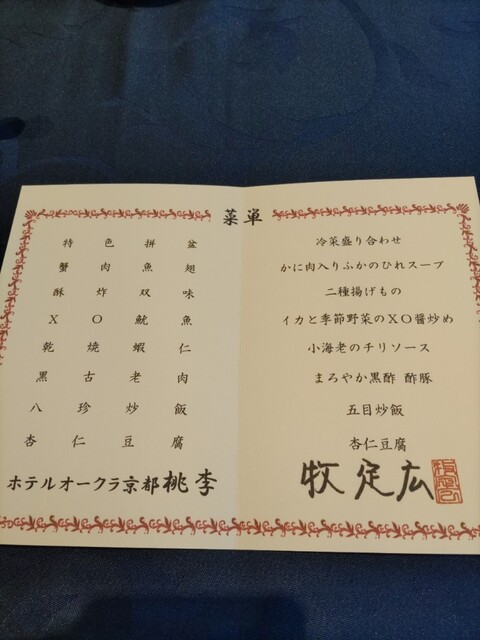 菜単
特色拼盆
蟹肉魚翅
酥炸双味
XO魷魚
乾焼蝦仁
黒古老肉
八珍炒飯
杏仁豆腐
ホテルオークラ京都 桃李
冷菜盛り合わせ
かに肉入りふかのひれスープ
二種揚げもの
イカと季節野菜のXO醬炒め
小海老のチリソース
まろやか黒酢 酢豚
五目炒飯
杏仁豆腐
牧 定広